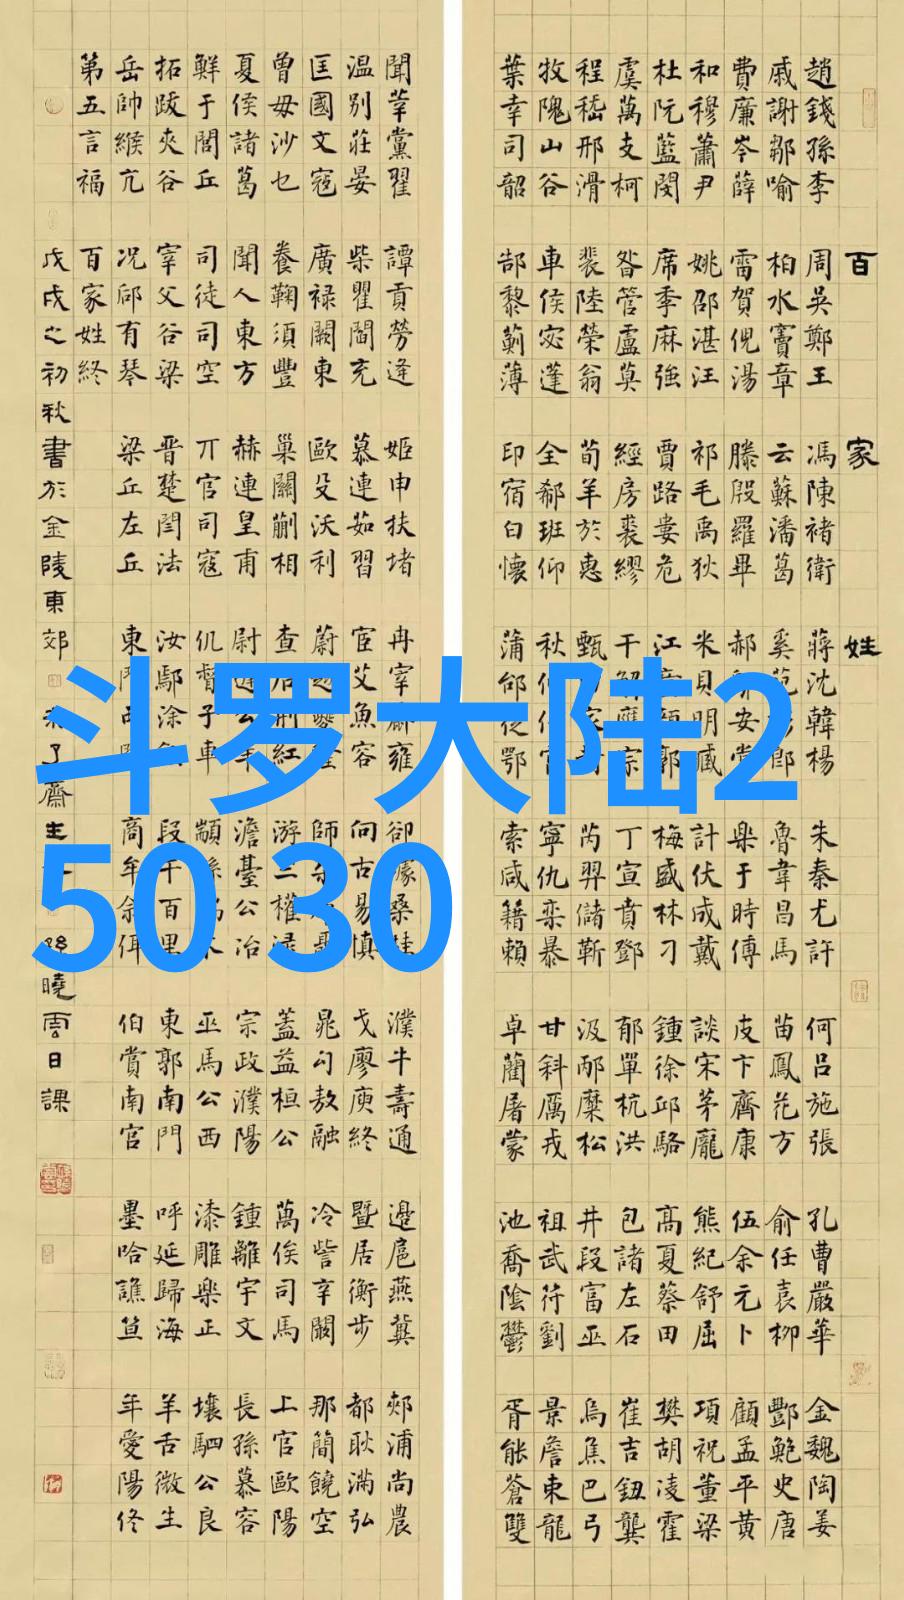 百家姓
趙錢孫李 周吳鄭王 馮陳褚衛 蔣沈韓楊 朱秦尤許 何呂施張 孔曹嚴華 金魏陶姜
戚謝鄒喻 柏水竇章 云蘇潘葛 奚范彭郎 魯韋昌馬 苗鳳花方 俞任袁柳 酆鮑史唐
費廉岑薛 雷賀倪湯 滕殷羅畢 郝鄔安常 樂于時傅 皮卞齊康 伍余元卜 顧孟平黃
和穆蕭尹 姚邵湛汪 祁毛禹狄 米貝明臧 計伏成戴 談宋茅龐 熊紀舒屈 項祝董梁
杜阮藍閔 席季麻強 賈路婁危 江童顏郭 梅盛林刁 鍾徐邱駱 高夏蔡田 樊胡凌霍
虞萬支柯 昝管盧莫 經房裘繆 干解應宗 丁宣賁鄧 郁單杭洪 包諸左石 崔吉鈕龔
程嵇邢滑 裴陸榮翁 荀羊於惠 甄家封 芮羿儲靳 汲邴糜松 井段富巫 烏焦巴弓
牧隗山谷 車侯宓蓬 全郗班仰 秋仲伊宮 寧仇欒暴 甘斜厲戎 祖武符劉 景詹束龍
葉幸司韶 郜黎薊薄 印宿白懷 蒲邰從鄂 索咸籍賴 卓藺屠蒙 池喬陰鬱 胥能蒼雙
聞莘黨翟 譚貢勞逄 姬申扶堵 冉宰酈雍 卻璩桑桂 濮牛壽通 邊扈燕冀 郟浦尚農
温別莊晏 柴瞿閻充 慕連茹習 宦艾魚容 向古易慎 戈廖庾終 暨居衡步 都耿滿弘
匡國文寇 廣祿闕東 歐殳沃利 蔚越夔隆 師聶 晁勾敖融 冷訾辛闞 那簡饒空
曾毋沙乜 養鞠須豐 巢關蒯相 查后荊紅 游竺權逯 蓋益桓公 萬俟司馬 上官歐陽
夏侯諸葛 聞人東方 赫連皇甫 尉遲公羊 澹臺公冶 宗政濮陽 鍾離宇文 長孫慕容
鮮于閭丘 司徒司空 丌官司寇 仉督子車 顓孫端木 巫馬公西 漆雕樂正 壤駟公良
拓跋夾谷 宰父谷梁 晉楚閆法 汝鄢涂欽 段干百里 東郭南門 呼延歸海 羊舌微生
岳帥緱亢 況郈有琴 梁丘左丘 東門西門 商牟佘佴 伯賞南宮 墨哈譙笪 年愛陽佟
第五言福 百家姓終
戊戌之初秋書於金陵東郊 了齋 孫曉雲日課
斗罗大陆2
50 30